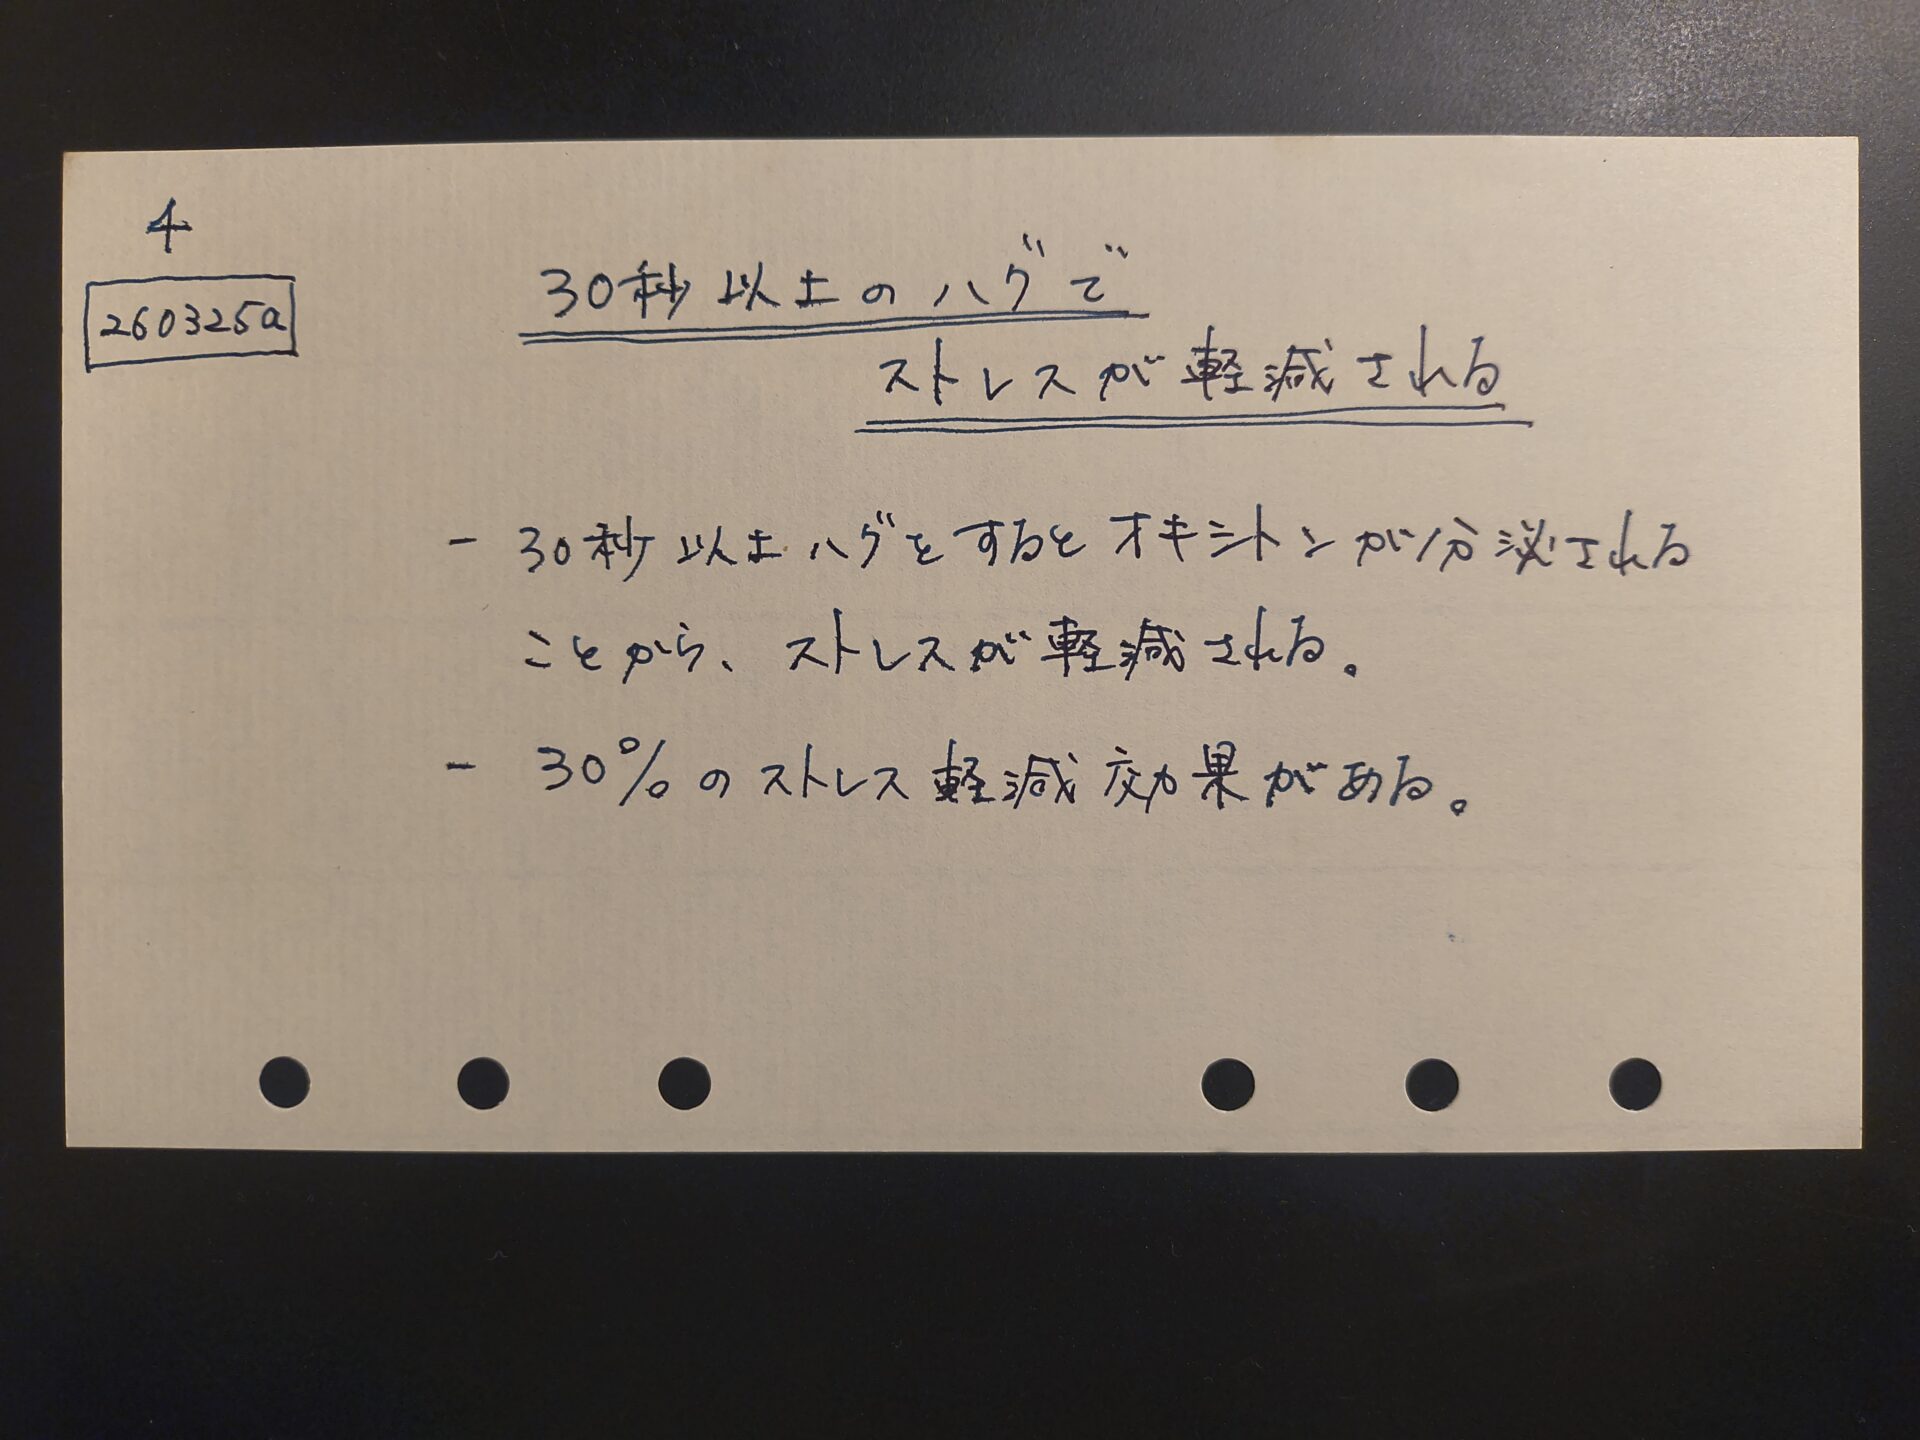 4
260325a
30秒以上のハグで
ストレスが軽減される
- 30秒以上ハグをするとオキシトンが分泌される
ことから、ストレスが軽減される。
- 30%のストレス軽減効果がある。